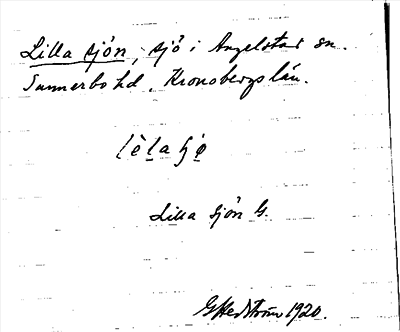 Lilla sjön, sjö i Angelstad sn.
Sunnerbo hd, Kronobergs län.
Lilla sjön G.
G Hedström 1920.